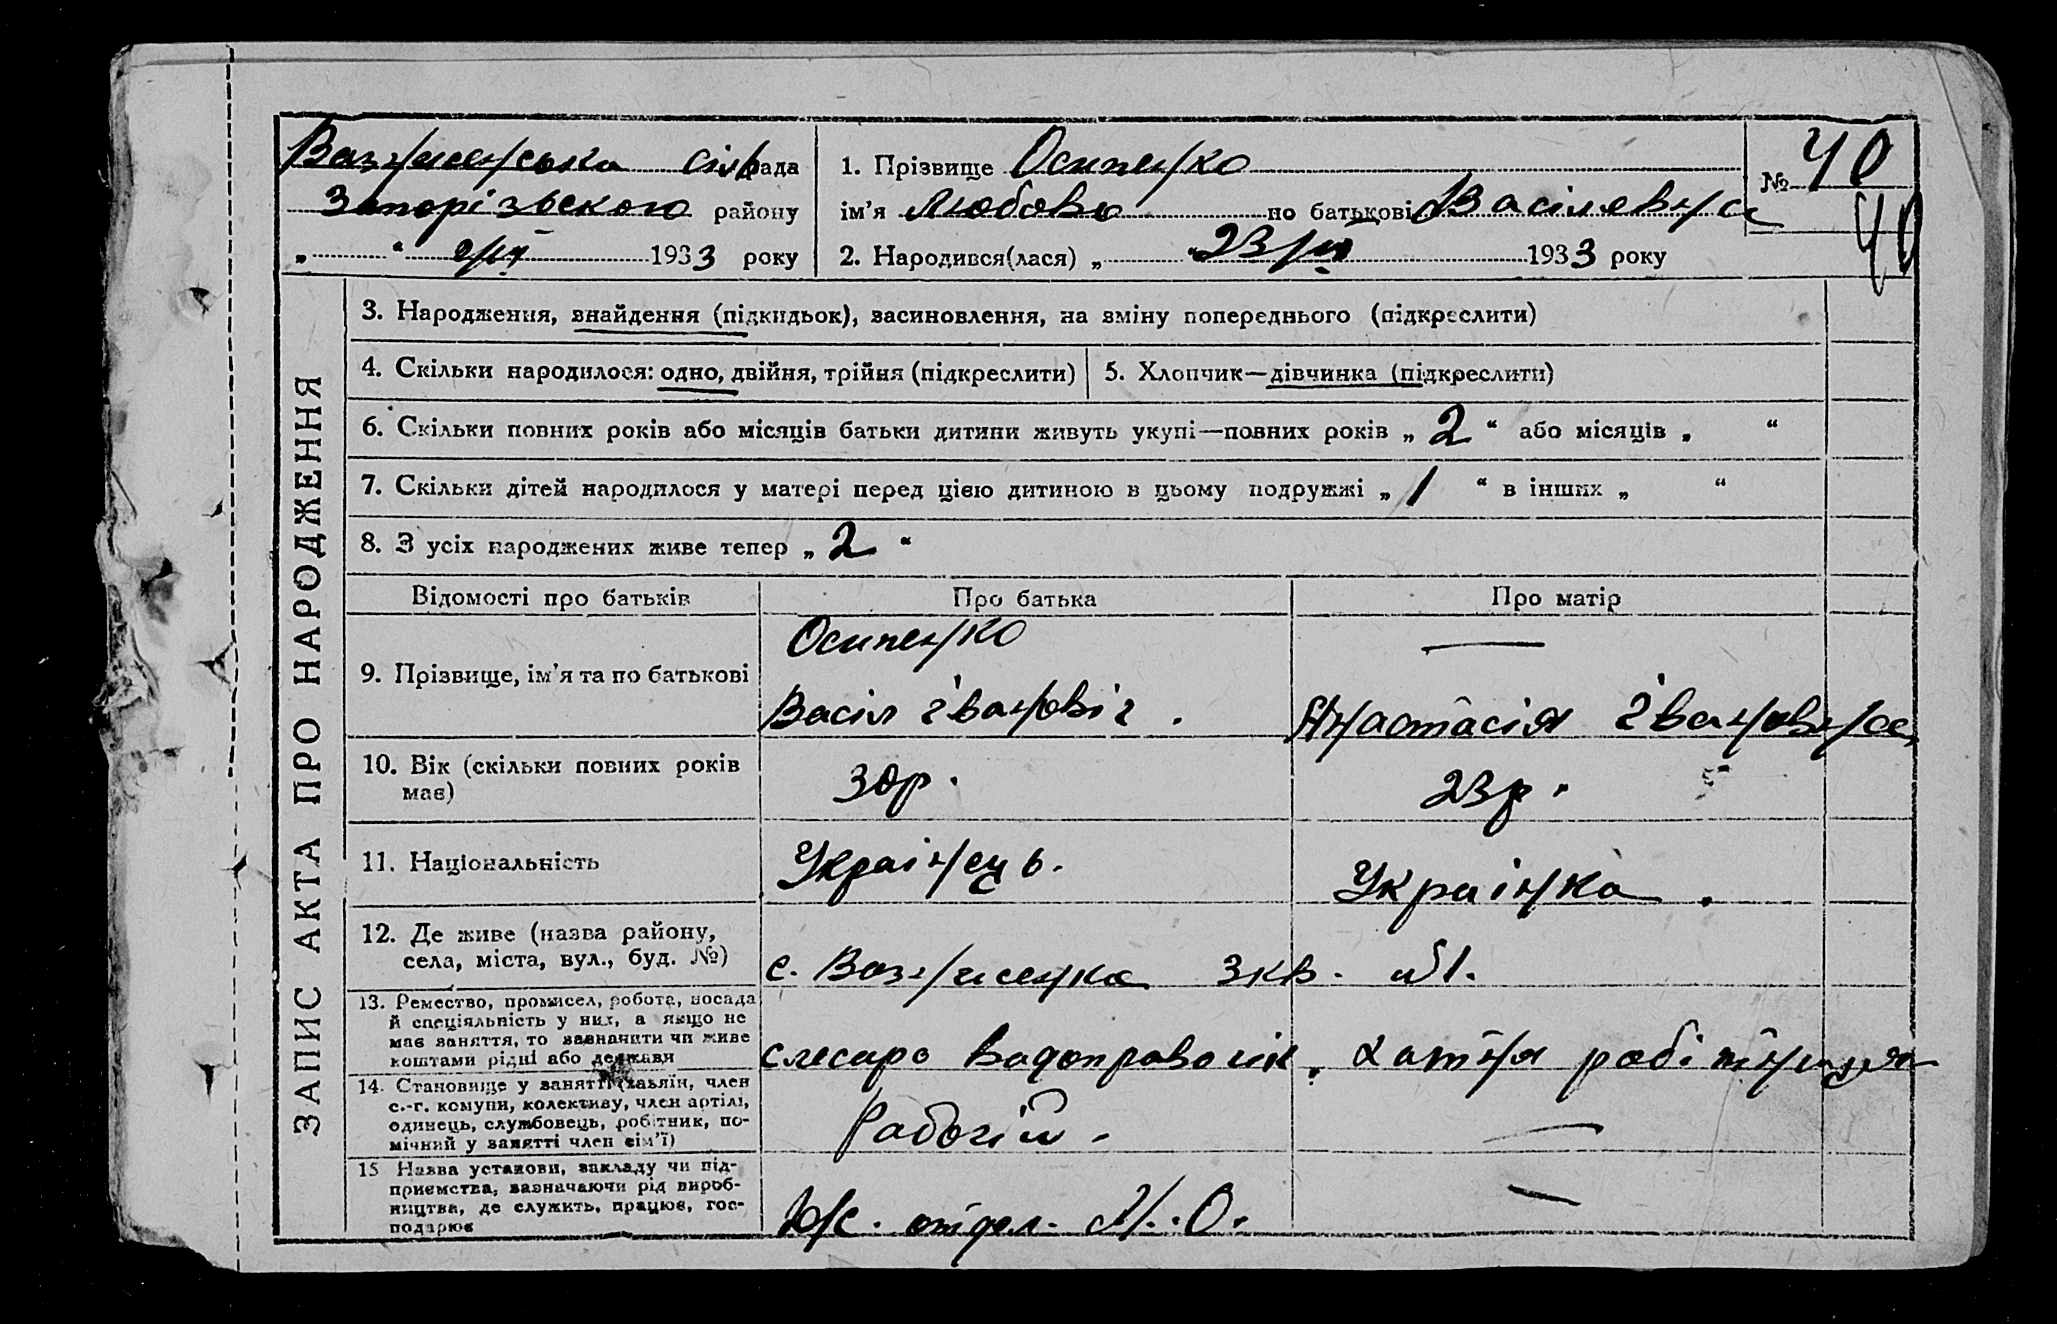 Вознисенська сільрада
Запорізського району
„ “ 2/IV 1933 року
1. Прізвище Осипенко
ім’я Любовь по батькові Васілевна
2. Народився(лася) „ 23/ 1933 року
№ 40
40
ЗАПИС АКТА ПРО НАРОДЖЕННЯ
3. Народження, знайдення (підкидьок), засиновлення, на зміну попереднього (підкреслити)
4. Скільки народилося: одно, двійня, трійня (підкреслити)
5. Хлопчик—дівчинка (підкреслити)
6. Скільки повних років або місяців батьки дитини живуть укупі—повних років „ 2 “ або місяців „ “
7. Скільки дітей народилося у матері перед цією дитиною в цьому подружжі „ 1 “ в інших „ “
8. З усіх народжених живе тепер „ 2 “
Відомості про батьків
Про батька
Про матір
9. Прізвище, ім’я та по батькові
Осипенко
Васіл Івановіч.
—
Анастасія Івановна
10. Вік (скільки повних років
має)
30р.
23р.
11. Національність
Украінець.
Украінка.
12. Де живе (назва району,
села, міста, вул., буд. №)
с. Вознисенка 3кв. №1.
13. Ремество, промисел, робота, посада
й спеціяльність у них, а якщо не
має заняття, то зазначити чи живе
коштами рідні або держави
слесарь водопроводчік.
хатня робітниця
14. Становище у занятті (хазяїн, член
с.-г. комуни, колективу, член артілі,
одинець, службовець, робітник, по-
мічний у занятті член сім’ї)
Рабочій.
—
15 Назва установи, закладу чи під-
приємства, зазначаючи рід вироб-
ництва, де служить, працює, гос-
подарює
отдел. О.
—